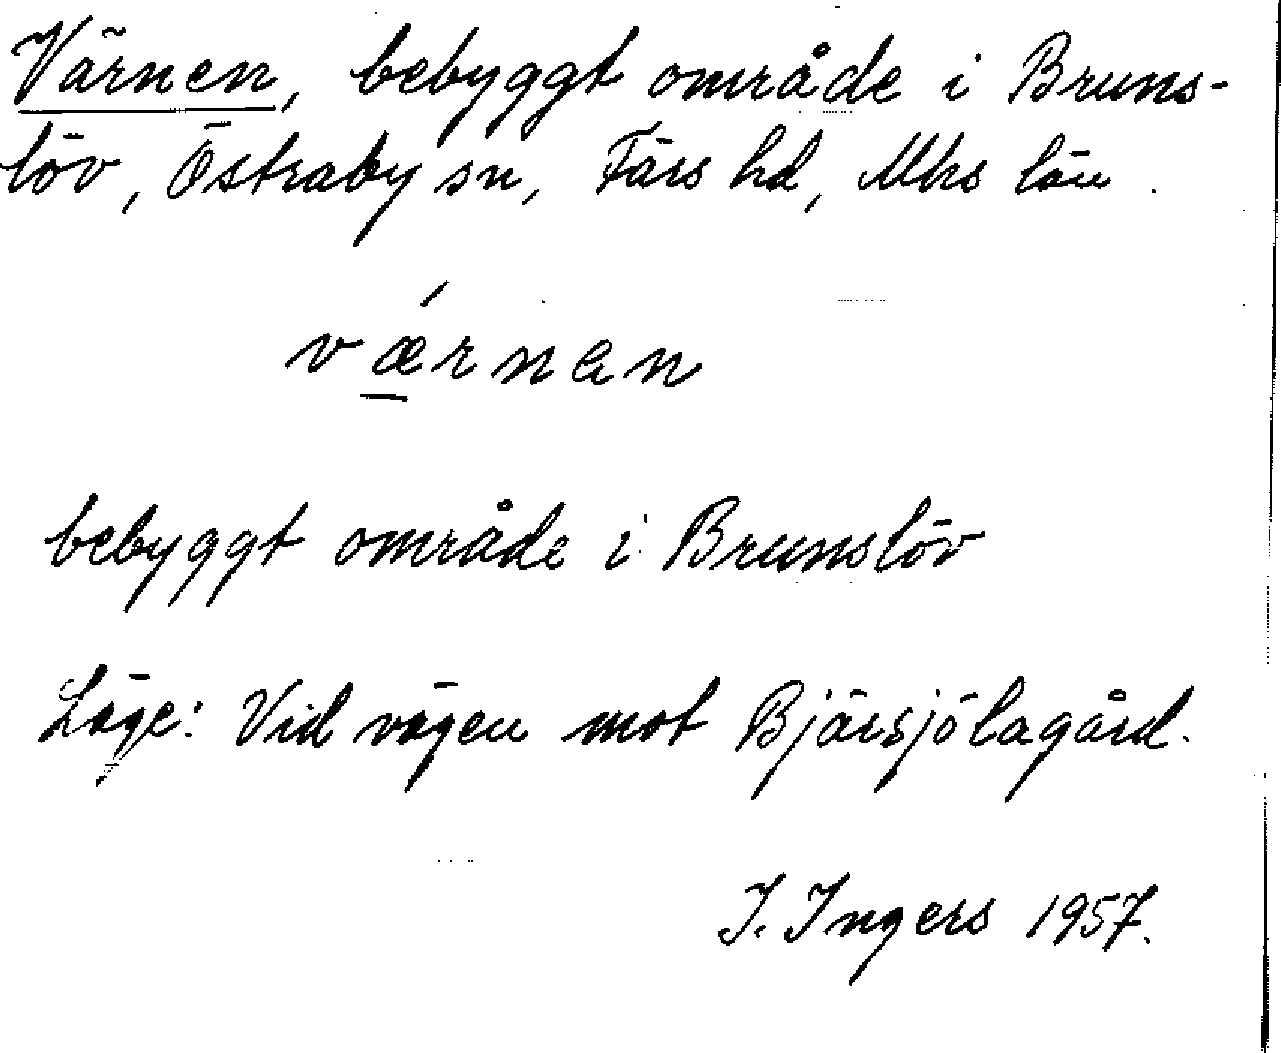 Värnen, bebyggt område i Bruns-
löv, Östraby sn, Färs hd, Mhs län.
værnan
bebyggt område i Brunslöv
Läge: Vid vägen mot Bjärsjölagård.
I. Ingers 1957.